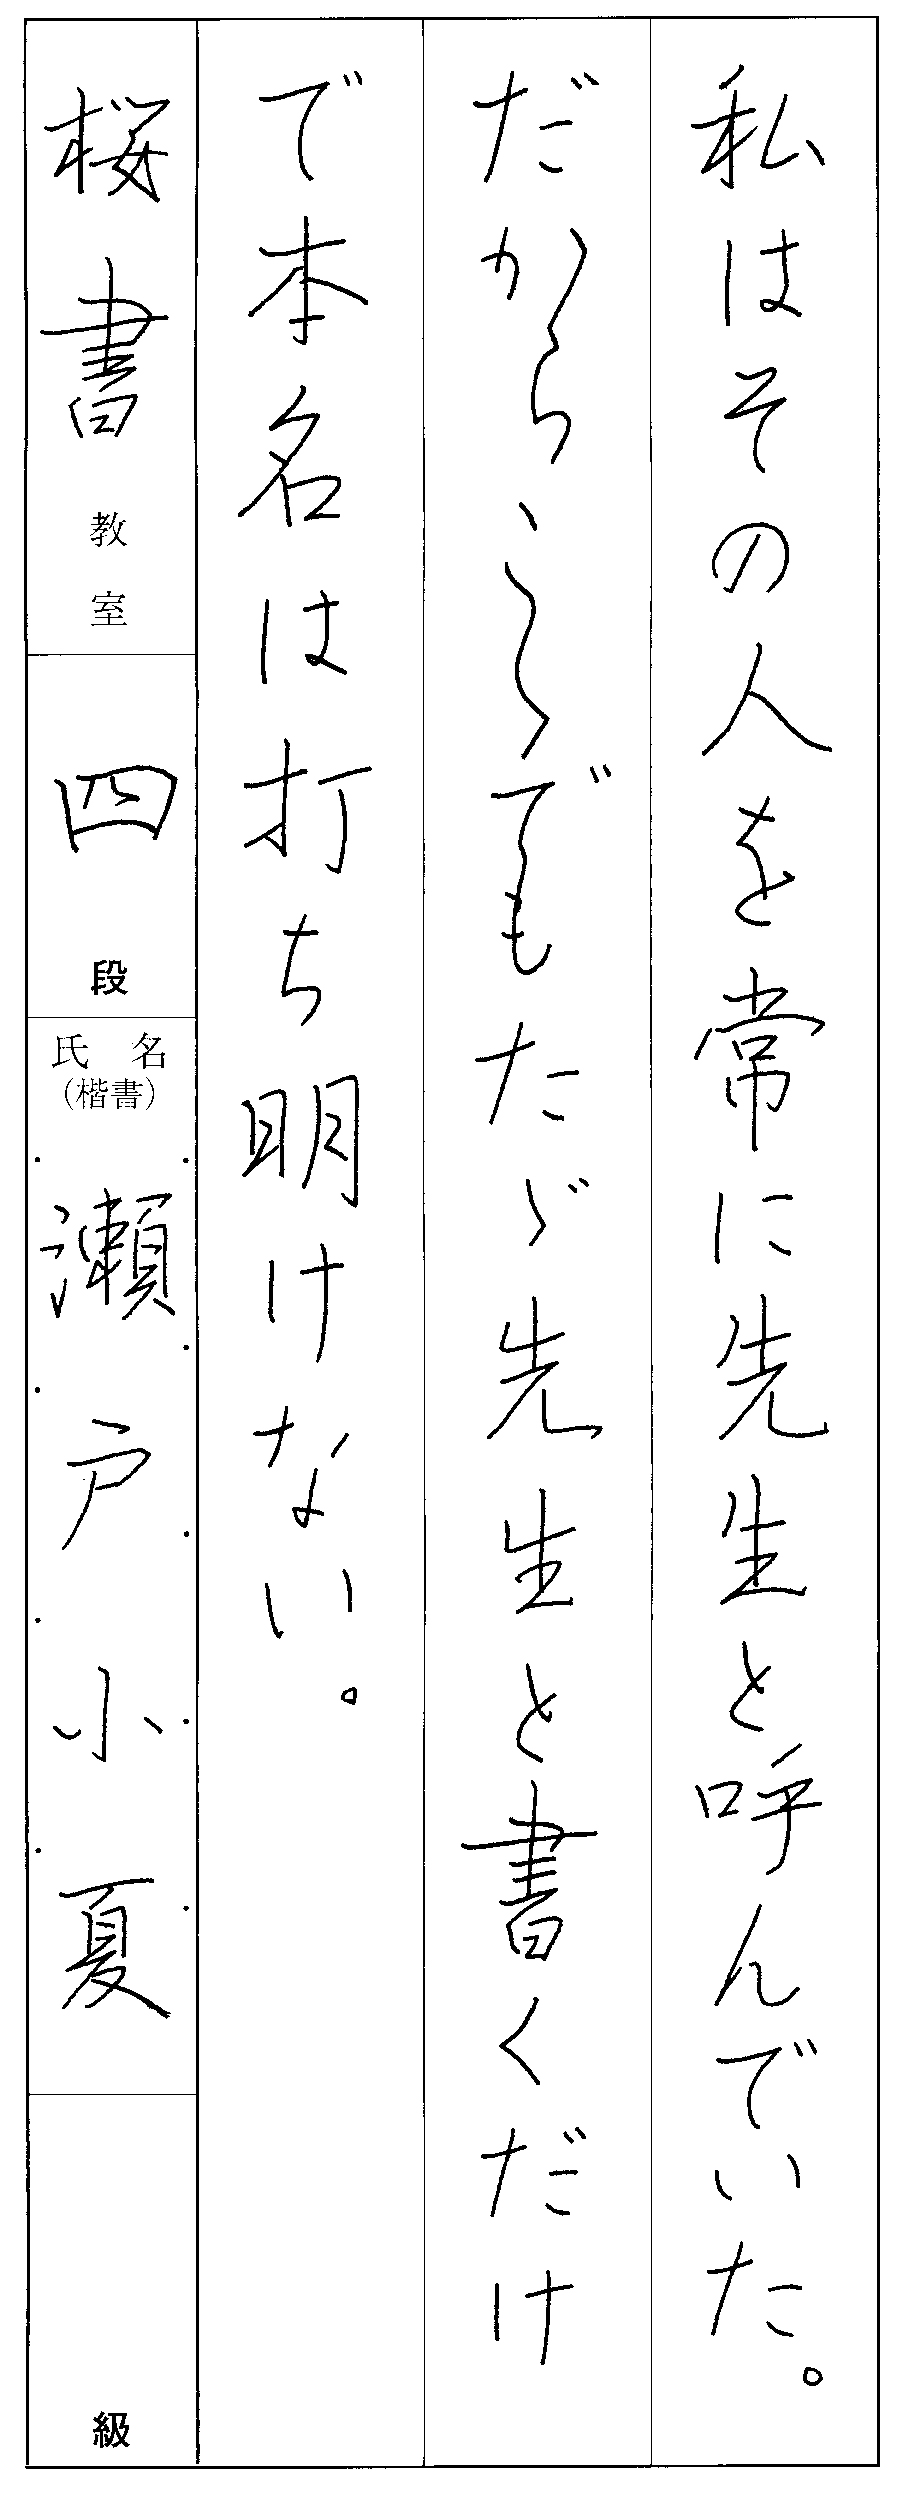 私はその人を常に先生と呼んでいた。
だからこゝでもたゞ先生と書くだけ
で本名は打ち明けない。
桜書教室
四段
氏名
(楷書)
瀬戸小夏
級